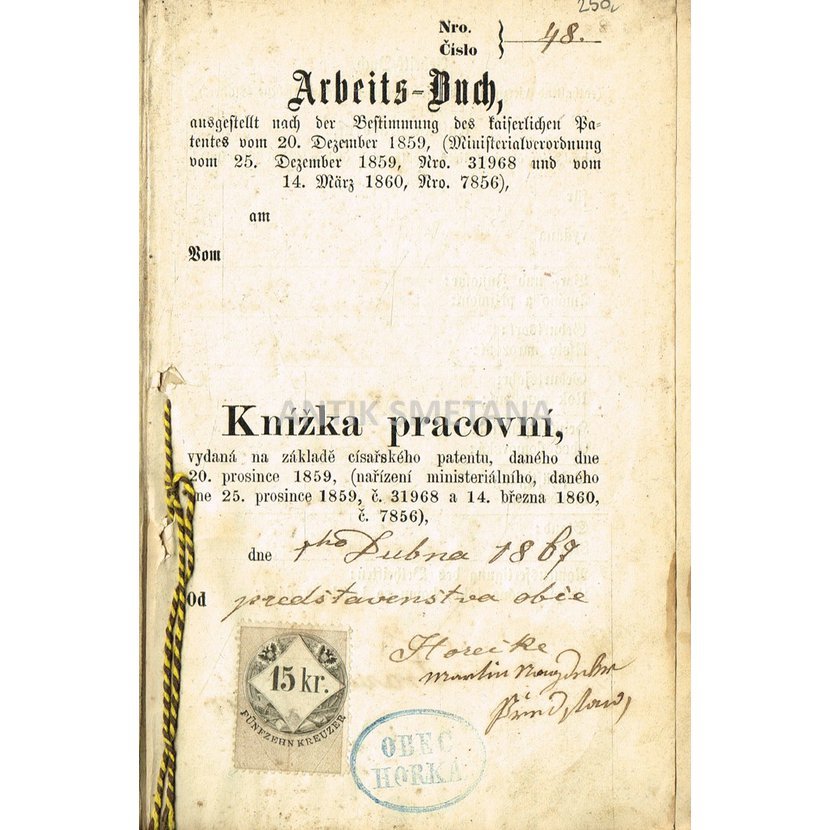 250
Nro.
Číslo } 48.
Arbeits-Buch,
ausgestellt nach der Bestimmung des kaiserlichen Pa-
tentes vom 20. Dezember 1859, (Ministerialverordnung
vom 25. Dezember 1859, Nro. 31968 und vom
14. März 1860, Nro. 7856),
am
Vom
ANTIK SMETANA
Knížka pracovní,
vydaná na základě císařského patentu, daného dne
20. prosince 1859, (nařízení ministeriálního, daného
dne 25. prosince 1859, č. 31968 a 14. března 1860,
č. 7856),
dne 1ho Dubna 1867
Od predstavenstva obce
Horecke
Martin
15 kr.
FÜNFZEHN KREUZER
OBEC
HORKA